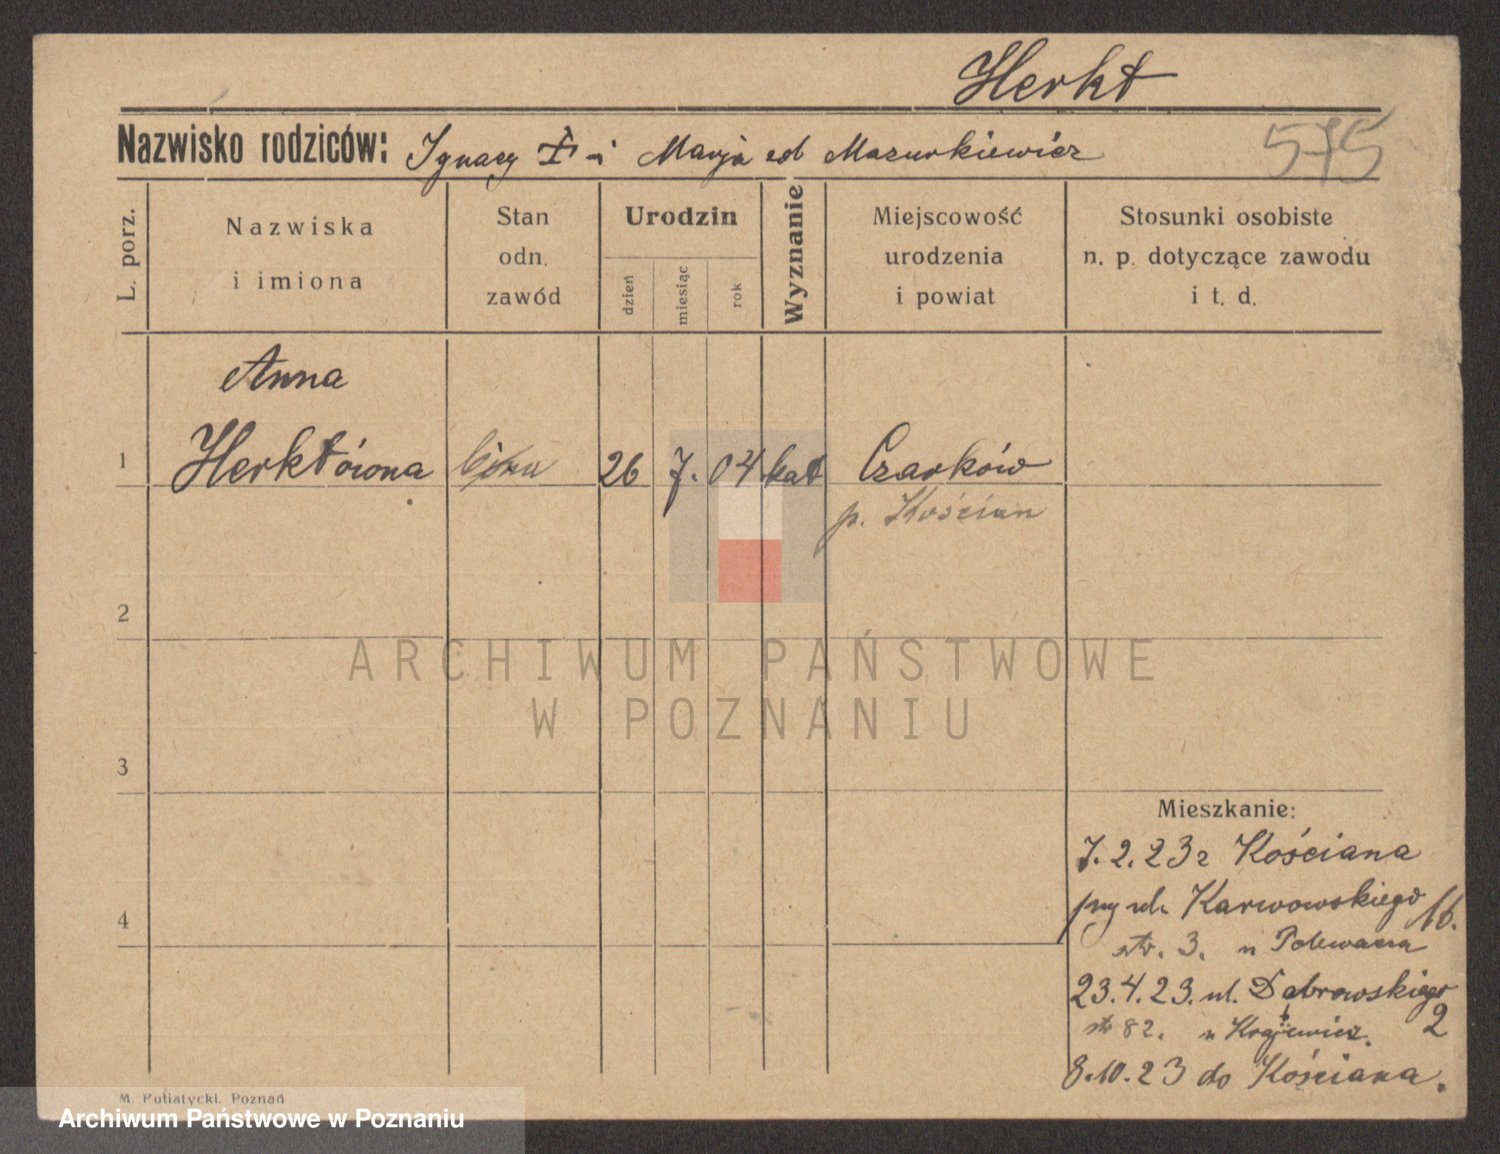 Herkt
Nazwisko rodziców: Ignacy i Marja od Mazurkiewicz
575
L. porz.
Nazwiska
i imiona
Stan
odn.
zawód
Urodzin
dzień
miesiąc
rok
Wyznanie
Miejscowość
urodzenia
i powiat
Stosunki osobiste
n. p. dotyczące zawodu
i t. d.
Anna
1 Herktówna 26 7. 04 kat Czarków
p. Kościan
2
ARCHIWUM PAŃSTWOWE
W POZNANIU
3
4
Mieszkanie:
7.2.23 z Kościana
przy ul. Karwowskiego 16.
str. 3. u
23.4.23. ul. Dąbrowskiego 2
str 82. u Krajewicz.
8.10.23 do Kościana.
M. Putiatycki. Poznań
Archiwum Państwowe w Poznaniu